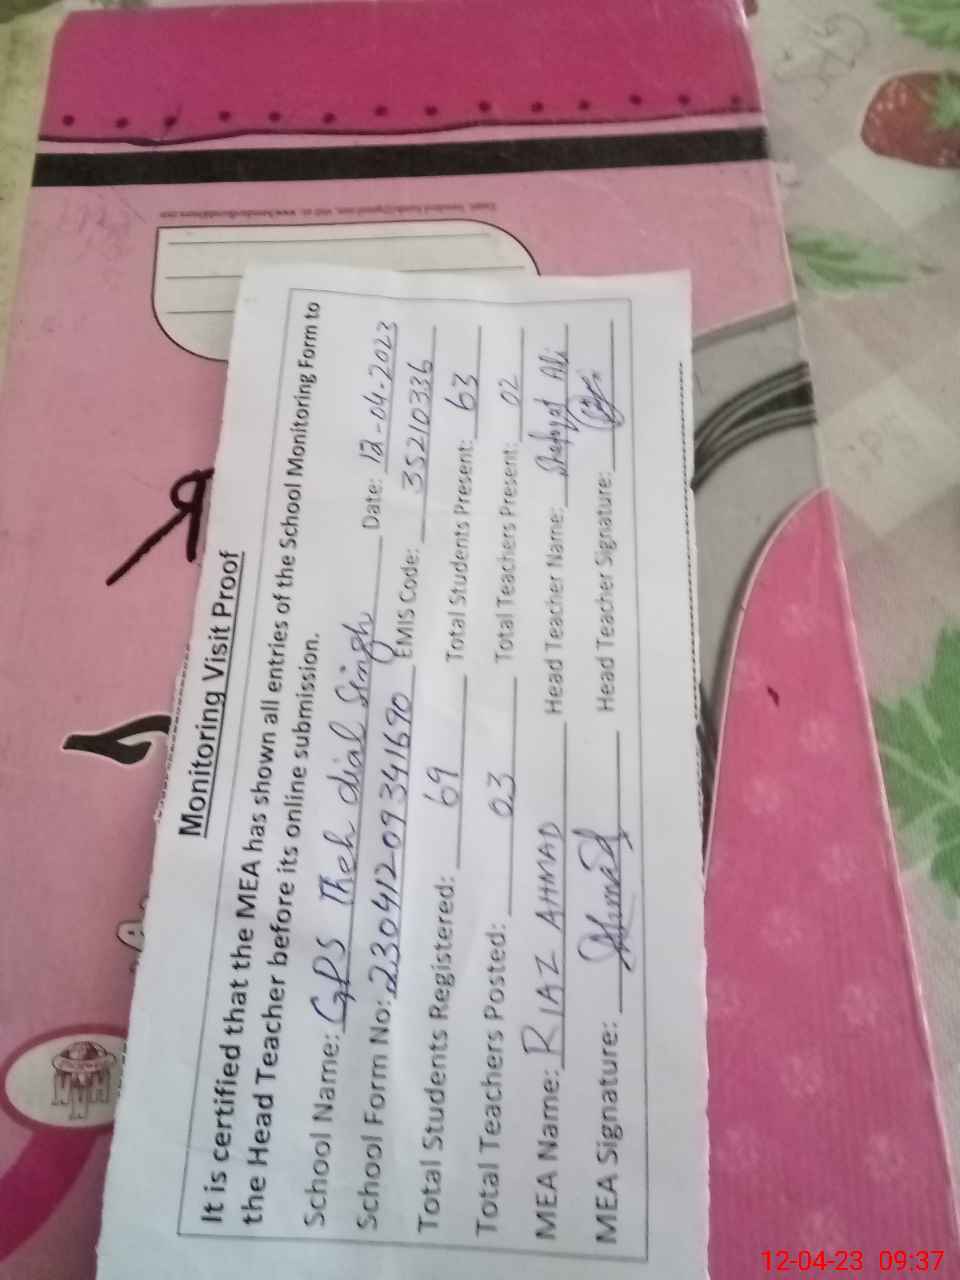 Monitoring Visit Proof
It is certified that the MEA has shown all entries of the School Monitoring Form to
the Head Teacher before its online submission.
School Name: GPS Theh dial Singh Date: 12-04-2023
School Form No: 23041209341690 EMIS Code: 35210336
Total Students Registered: 69 Total Students Present: 63
Total Teachers Posted: 03 Total Teachers Present: 02
MEA Name: RIAZ AHMAD Head Teacher Name: Shafqat Ali
MEA Signature: Ahmad Head Teacher Signature:
12-04-23 09:37